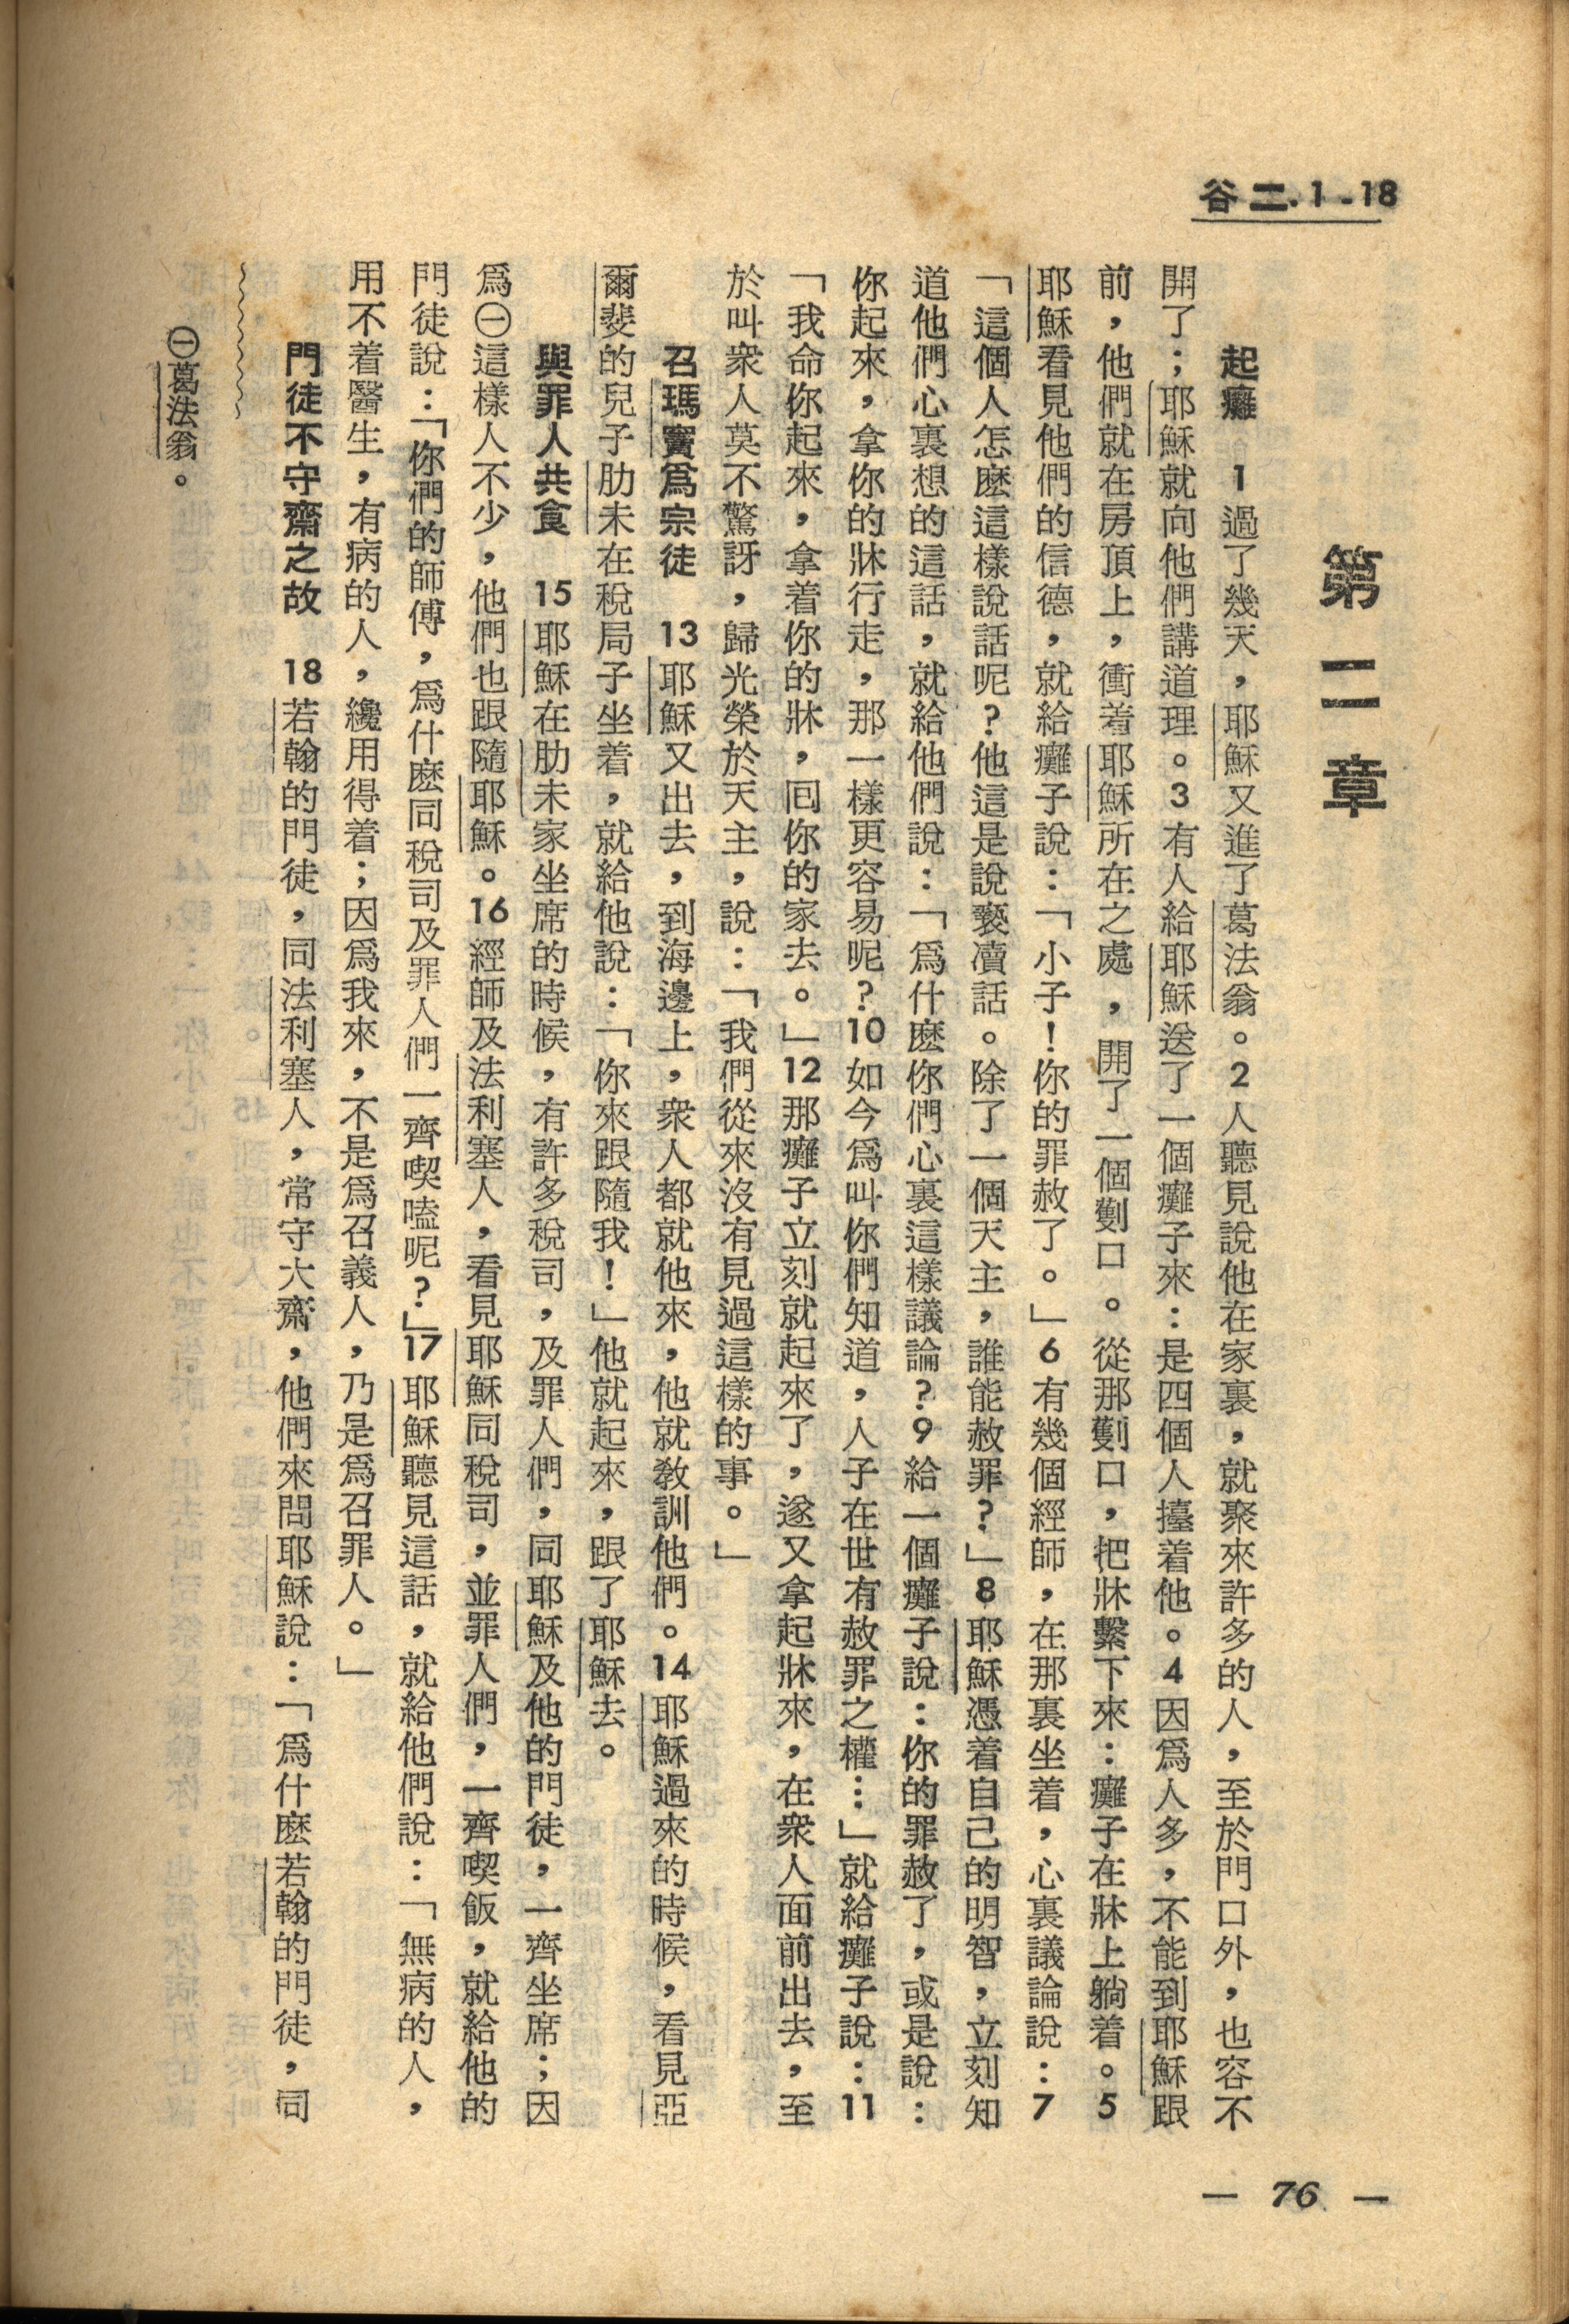 谷二.1-18
第二章
起癱　1過了幾天，耶穌又進了葛法翁。2人聽見說他在家裏，就聚來許多的人，至於門口外，也容不
開了；耶穌就向他們講道理。3有人給耶穌送了一個癱子來：是四個人擡着他。4因爲人多，不能到耶穌跟
前，他們就在房頂上，衝着耶穌所在之處，開了一個劐口。從那劐口，把牀繫下來：癱子在牀上躺着。5
耶穌看見他們的信德，就給癱子說：「小子！你的罪赦了。」6有幾個經師，在那裏坐着，心裏議論說：7
「這個人怎麽這樣說話呢？他這是說褻瀆話。除了一個天主，誰能赦罪？」8耶穌憑着自己的明智，立刻知
道他們心裏想的這話，就給他們說：「爲什麽你們心裏這樣議論？9給一個癱子說：你的罪赦了，或是說：
你起來，拿你的牀行走，那一樣更容易呢？10如今爲叫你們知道，人子在世有赦罪之權…」就給癱子說：11
「我命你起來，拿着你的牀，回你的家去。」12那癱子立刻就起來了，遂又拿起牀來，在衆人面前出去，至
於叫衆人莫不驚訝，歸光榮於天主，說：「我們從來沒有見過這樣的事。」
召瑪竇爲宗徒　13耶穌又出去，到海邊上，衆人都就他來，他就敎訓他們。14耶穌過來的時候，看見亞
爾斐的兒子肋未在稅局子坐着，就給他說：「你來跟隨我！」他就起來，跟了耶穌去。
與罪人共食　15耶穌在肋未家坐席的時候，有許多稅司，及罪人們，同耶穌及他的門徒，一齊坐席；因
爲㊀這樣人不少，他們也跟隨耶穌。16經師及法利塞人，看見耶穌同稅司，並罪人們，一齊喫飯，就給他的
門徒說：「你們的師傅，爲什麽同稅司及罪人們一齊喫嗑呢？」17耶穌聽見這話，就給他們說：「無病的人，
用不着醫生，有病的人，纔用得着；因爲我來，不是爲召義人，乃是爲召罪人。」
門徒不守齋之故　18若翰的門徒，同法利塞人，常守大齋，他們來問耶穌說：「爲什麽若翰的門徒，同
㊀葛法翁。
— 76 —